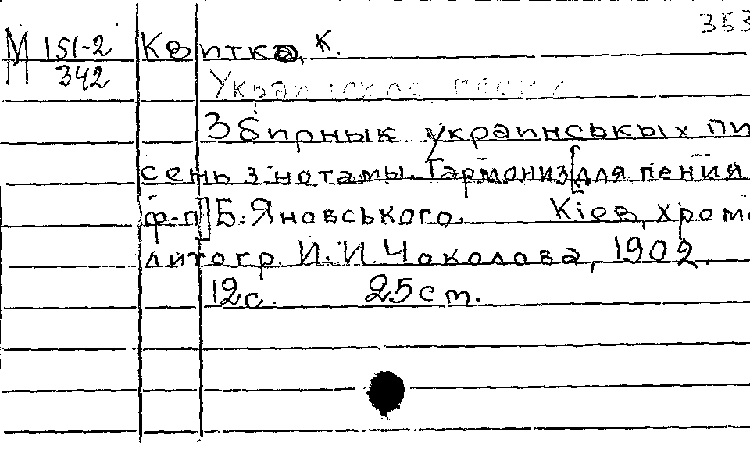 353
М 151-2 Квитка, К.
342
Украинские песни
Збирнык украинськых пи
сень з нотамы. Гармониз[для пения
ф-п] Б. Яновського. Кіев, хромо
литогр. И.И. Чоколова, 1902.
12с. 25 cm.